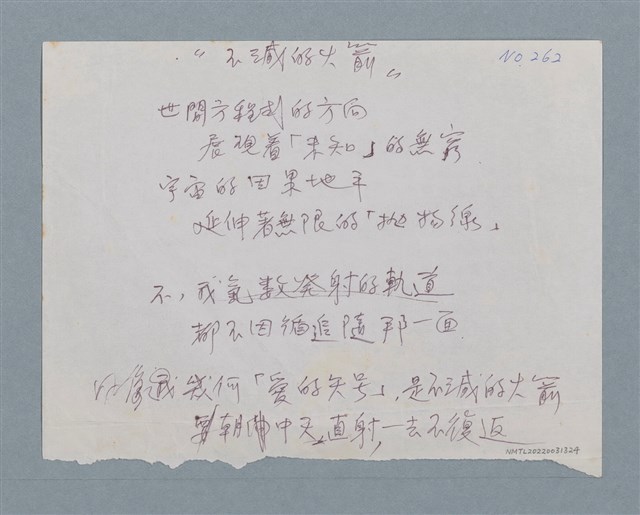 “不滅的火箭”
NO. 262
世間方程式的方向
展視着「未知」的無窮
宇宙的因果地平
延伸著無限的「拋物線」
不,我氣数発射的軌道
都不因循追隨那一面
好像 幾何「愛的矢号」,是不滅的火箭
朝 中天直射,一去不復返
NMTL20220031324